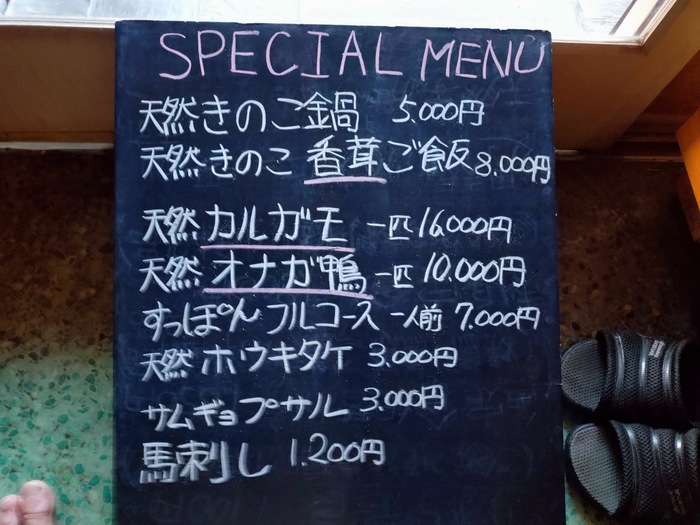 SPECIAL MENU
天然きのこ鍋 5.000円
天然きのこ香茸ご飯 8.000円
天然カルガモ 一匹 16.000円
天然オナガ鴨 一匹 10.000円
すっぽんフルコース 一人前 7.000円
天然ホウキタケ 3.000円
サムギョプサル 3.000円
馬刺し 1.200円